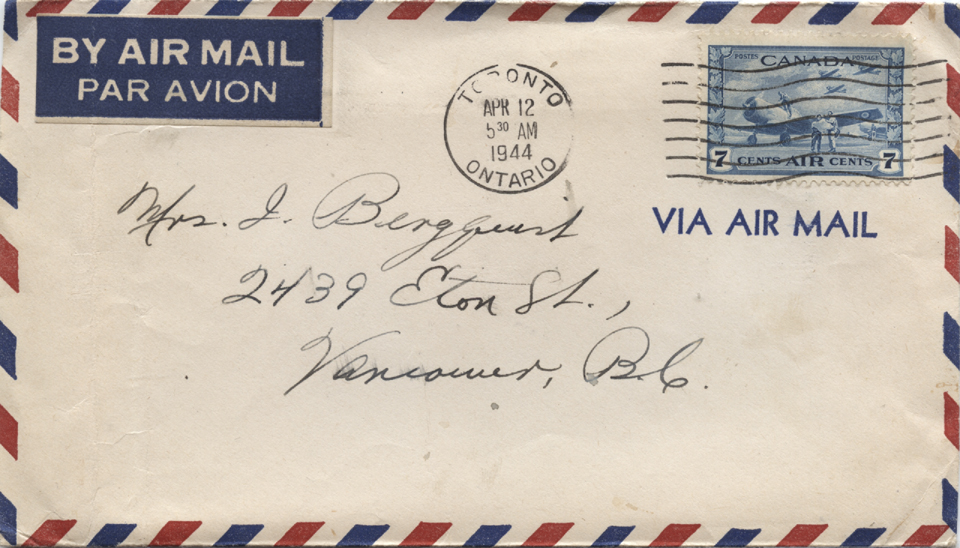 BY AIR MAIL
PAR AVION
TORONTO
APR 12
5 30 AM
1944
ONTARIO
POSTES CANADA POSTAGE
7 CENTS AIR CENTS 7
VIA AIR MAIL
Mrs. I. Bergquist
2439 Eton St.,
Vancouver, B.C.